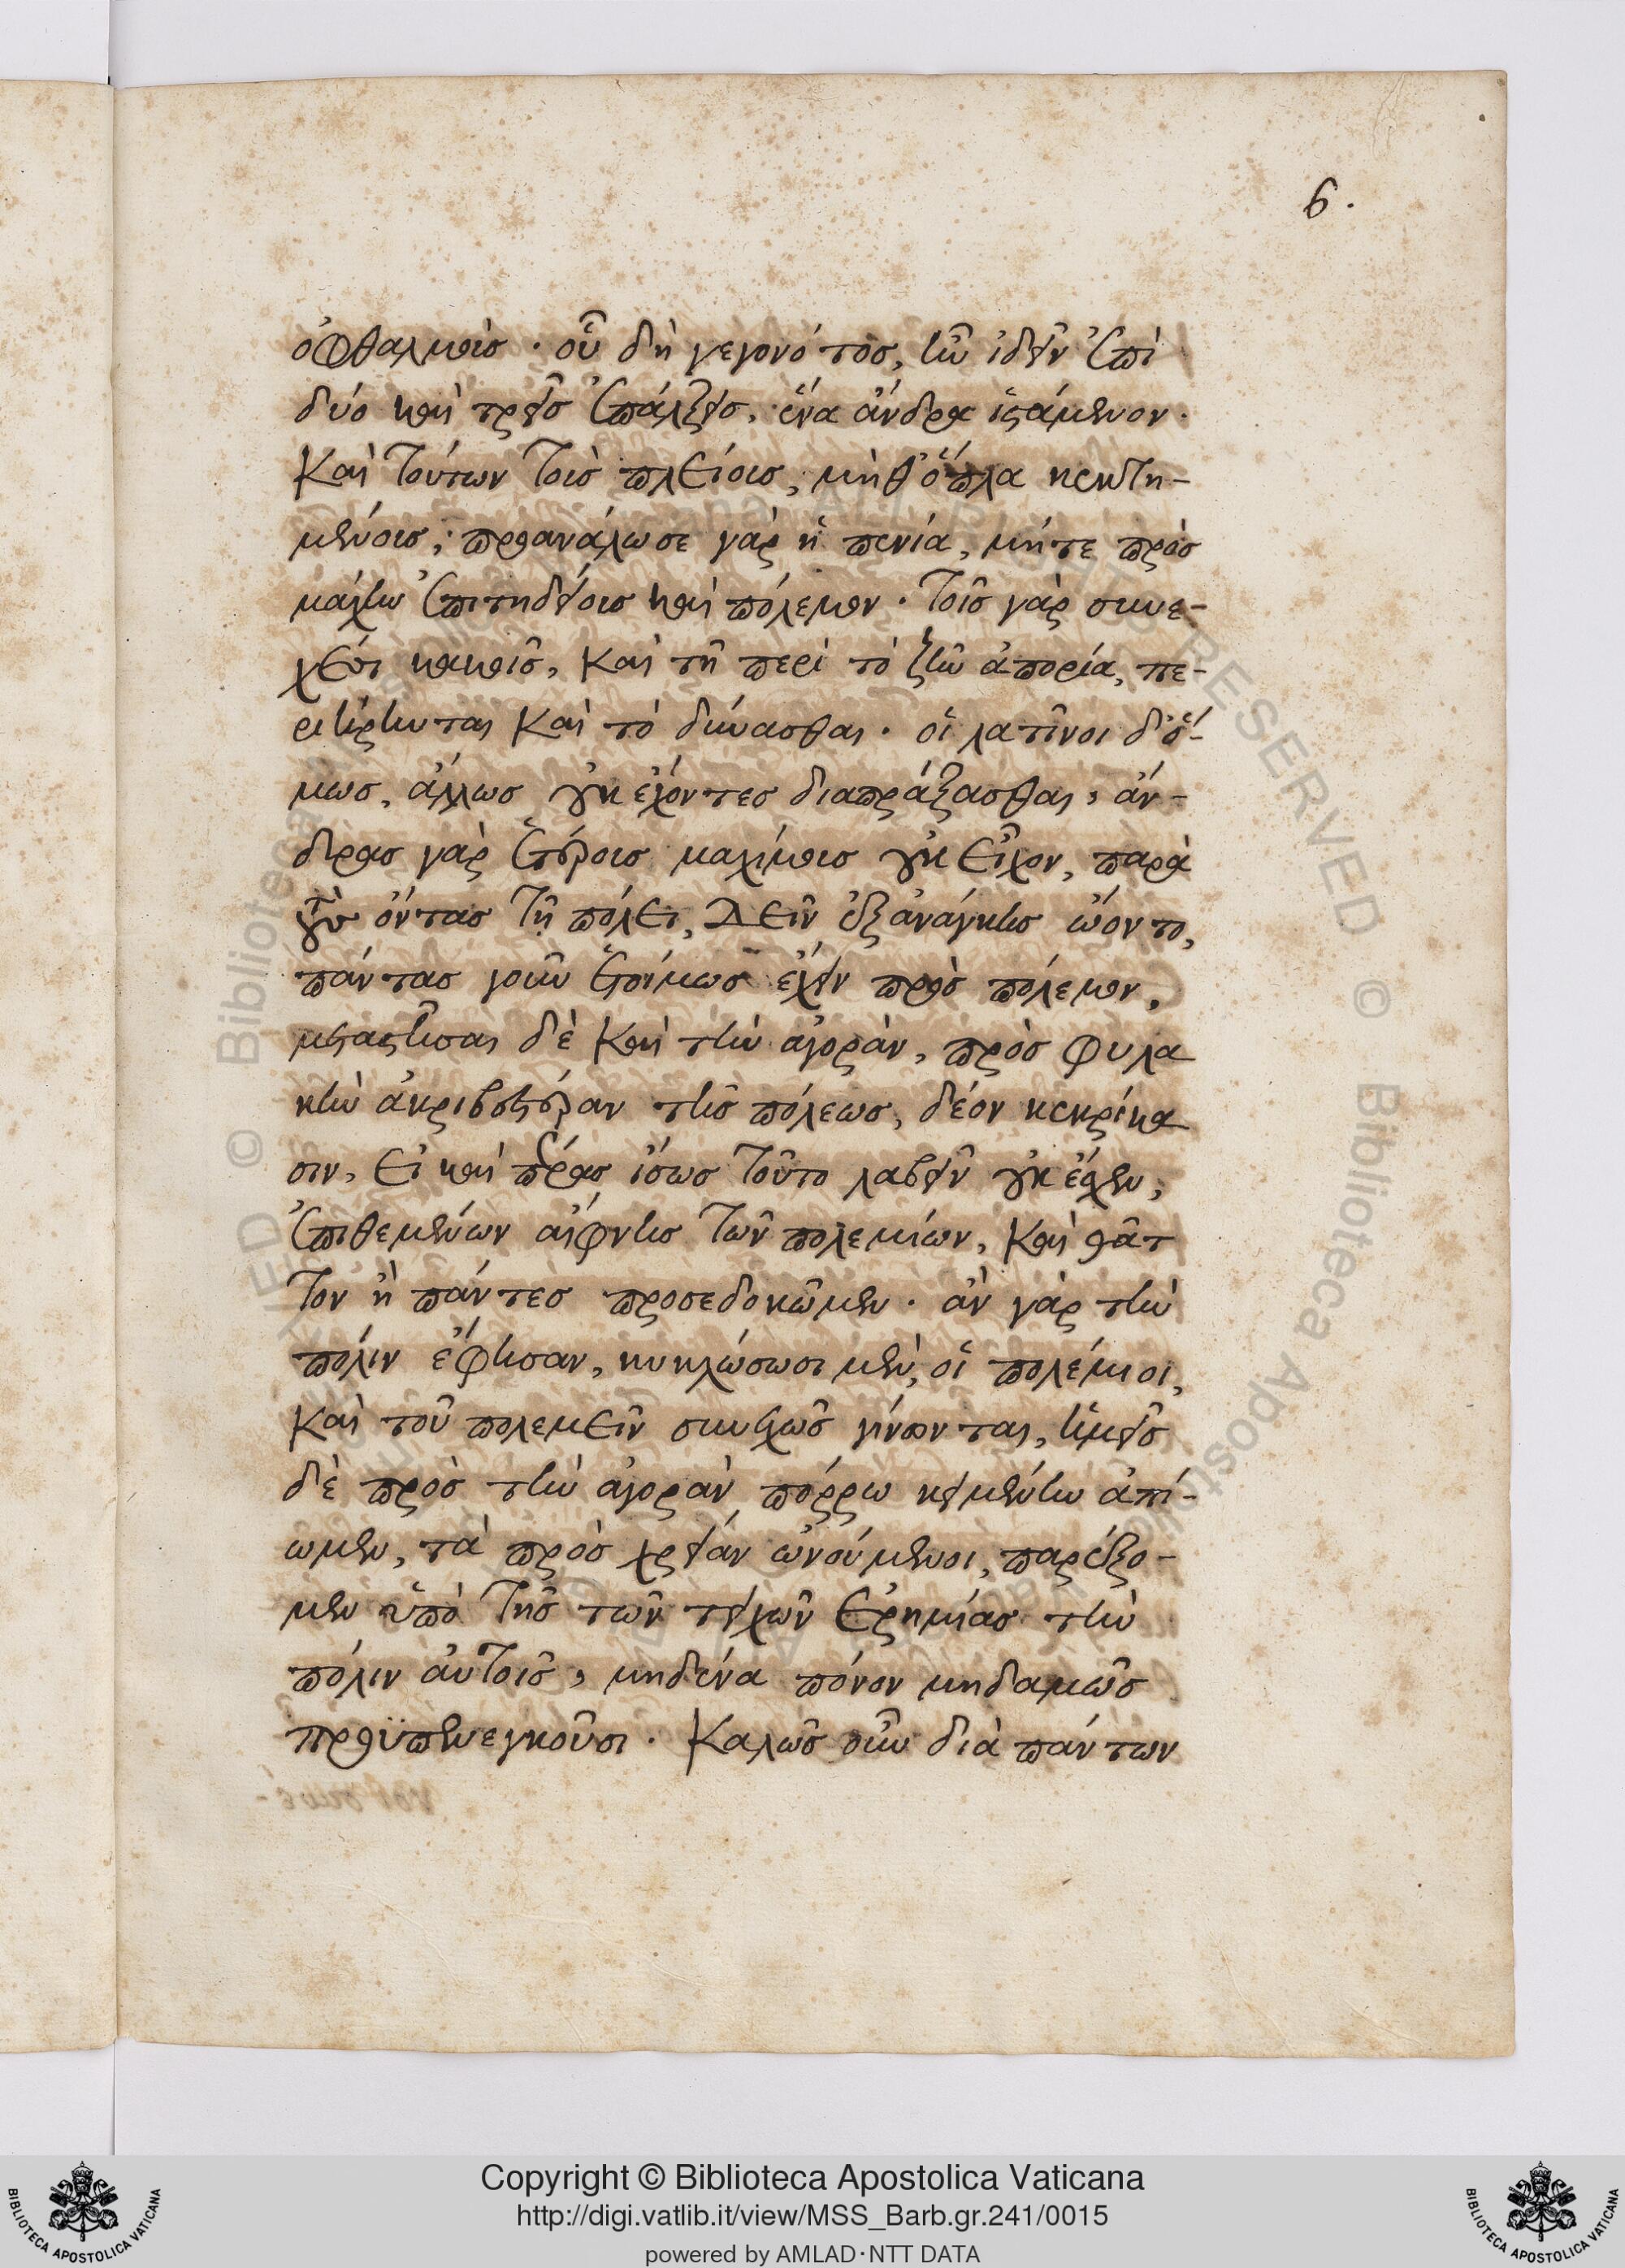 6.
ὀφθαλμοῖσ. οὗ δὴ γεγονότος, ἦν ἰδεῖν ἐπὶ
δύο καὶ τρεῖς ἐπάλξεις, ἕνα ἄνδρα ἱστάμενον.
Καὶ τούτων τοῖς πλείοις, μὴθ' ὅπλα κεκτη-
μένοις, προανάλωσε γὰρ ἡ πενία, μήτε πρὸς
μάχην ἐπιτηδείοις καὶ πόλεμον. τοῖς γὰρ συνε-
χέσι κακοῖς, καὶ τῇ περὶ τὸ ζῆν ἀπορία, πε-
ριήρηνται καὶ τὸ δύνασθαι. οἱ λατῖνοι δ' ὅ-
μως, ἄλλως οὐκ ἔχοντες διαπράξασθαι, ἄν-
δρας γὰρ ἑτέροις μαχίμοις οὐκ εἶχον, παρὰ
τοὺς ὄντας τῇ πόλει, Δεῖν ἐξανάγκης ὤοντο,
πάντας γοῦν ἑτοίμως ἔχειν πρὸς πόλεμον,
μεταστῆσαι δὲ καὶ τὴν ἀγορὰν, πρὸς φυλα
κὴν ἀκριβεστέραν τῆς πόλεως, δέον κεκρίκα
σιν, εἰ καὶ πέρας ἴσως τοῦτο λαβεῖν οὐκ ἔχῃ,
ἐπιθεμένων αἴφνης τῶν πολεμίων, καὶ θᾶτ
τον ἢ πάντες προσεδοκῶμεν. ἂν γὰρ τὴν
πόλιν ἔφησαν, κυκλώσωσι μὲν, οἱ πολέμιοι,
καὶ τοῦ πολεμεῖν συνεχῶς γίνωνται, ἡμεῖς
δὲ πρὸς τὴν ἀγορὰν πόρρω κειμένην ἀπί-
ωμεν, τὰ πρὸς χρείαν ὠνούμενοι, παρέξο-
μεν ὑπὸ τῆς τῶν τειχῶν ἐρημίας τὴν
πόλιν αὐτοῖς, μηδένα πόνον μηδαμῶς
προϋπενεγκοῦσι. Καλῶς οὖν διὰ πάντων
Copyright © Biblioteca Apostolica Vaticana
http://digi.vatlib.it/view/MSS_Barb.gr.241/0015
powered by AMLAD·NTT DATA